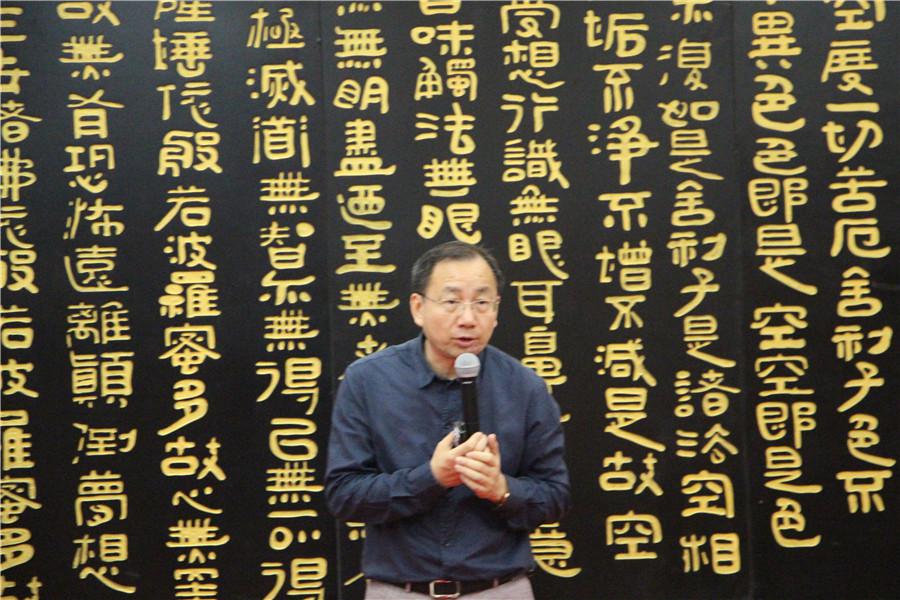 空度一切苦厄舍利子色不
異色色即是空空即是色
亦復如是舍利子是諸法空相
垢不淨不增不減是故空
受想行識無眼耳鼻意
香味觸法無眼
無無明盡迺至無老
極滅道無智亦無得㠯無所得
薩埵依般若波羅蜜多故心無罣
故無有恐怖遠離顛倒夢想
三世諸佛依般若波羅蜜多故